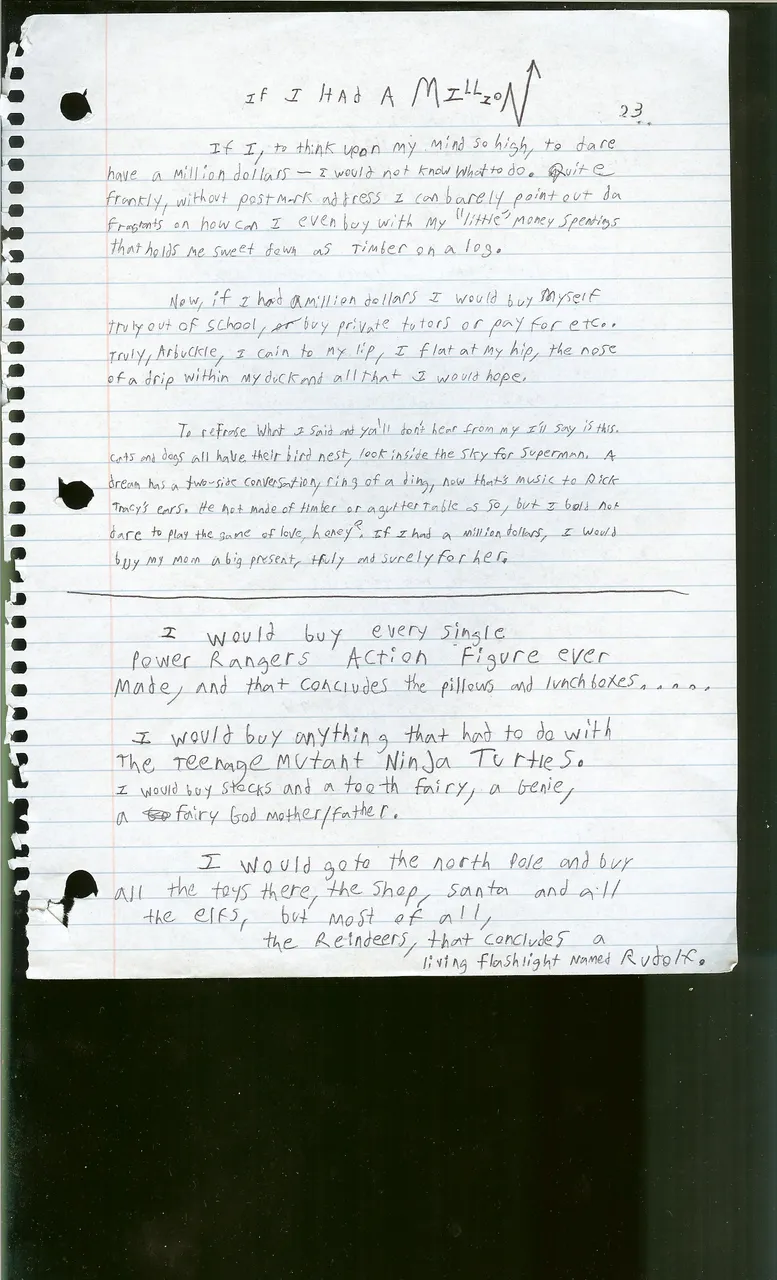 IF I HAd A MILLION
23..
If I, to think upon my mind so high, to dare
have a million dollars — I would not know what to do. Quite
frankly, without postmark address I can barely point out da
fragments on how can I even buy with my "little" money spentings
that holds me sweet down as Timber on a log.
Now, if I had a million dollars I would buy Myself
truly out of school, or buy private tutors or pay for etc..
Truly, Arbuckle, I cain to my lip, I flat at my hip, the nose
of a drip within my duck and all that I would hope.
To refrase what I said and ya'll don't hear from my I'll say is this.
cats and dogs all have their bird nest, look inside the sky for Superman. A
dream has a two-side conversation, ring of a ding, now that's music to Dick
Tracy's ears. He not made of timber or a gutter table as so, but I bold not
dare to play the game of love, honey? If I had a million dollars, I would
buy my mom a big present, truly and surely for her.
I would buy every single
Power Rangers Action Figure ever
Made, and that concludes the pillows and lunchboxes.....
I would buy anything that had to do with
The Teenage Mutant Ninja Turtles.
I would buy stocks and a tooth fairy, a Genie,
a fairy God mother/father.
I would go to the north Pole and buy
all the toys there, the shop, santa and all
the elfs, but most of all,
the Reindeers, that concludes a
living flashlight named Rudolf.